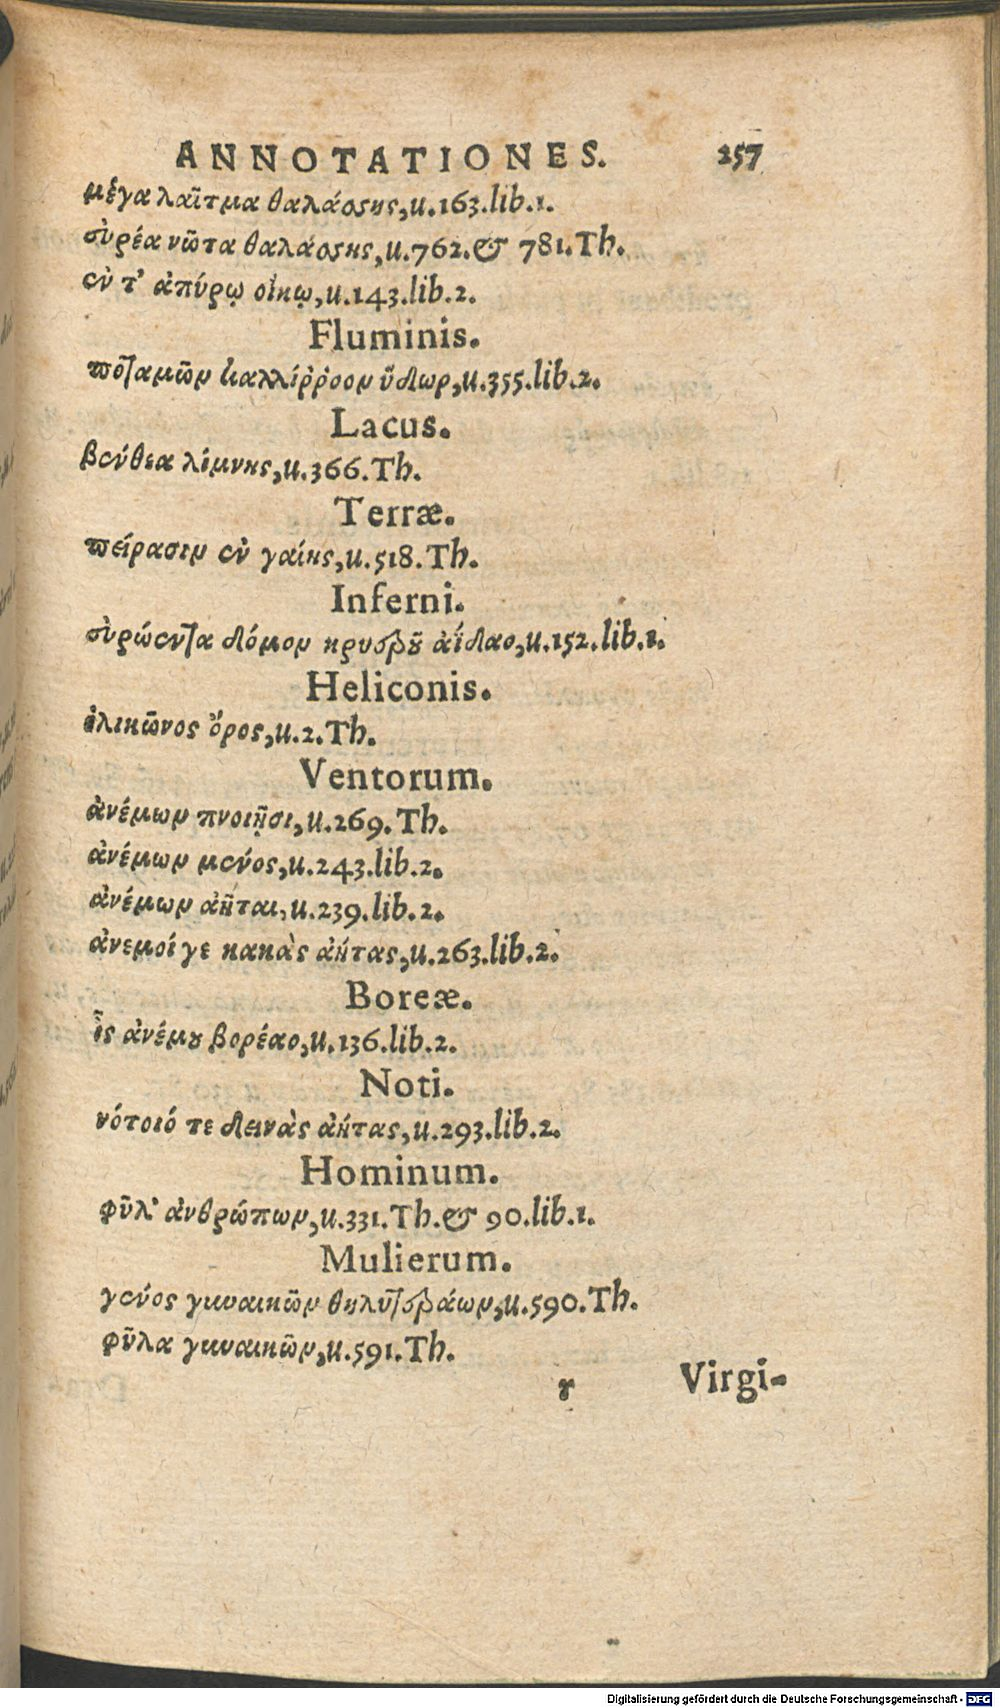 ANNOTATIONES. 257
μέγα λαῖτμα θαλάσσης, u.163.lib.1.
εὐρέα νῶτα θαλάσσης, u.762.& 781.Th.
ἐν τ' ἀπύρῳ οἴκῳ, u.143.lib.2.
Fluminis.
ποταμῶν καλλίῤῥοον ὕδωρ, u.355.lib.2.
Lacus.
βένθεα λίμνης, u.366.Th.
Terræ.
πείρασιν ἐν γαίης, u.518.Th.
Inferni.
εὐρώεντα δόμον κρυεροῦ ἀΐδαο, u.152.lib.1.
Heliconis.
ἑλικῶνος ὄρος, u.2.Th.
Ventorum.
ἀνέμων πνοιῇσι, u.269.Th.
ἀνέμων μένος, u.243.lib.2.
ἀνέμων ἀῆται, u.239.lib.2.
ἀνεμοί γε κακὰς ἀήτας, u.263.lib.2.
Boreæ.
ἲς ἀνέμου βορέαο, u.136.lib.2.
Noti.
νότοιό τε δεινὰς ἀήτας, u.293.lib.2.
Hominum.
φῦλ' ἀνθρώπων, u.331.Th.& 90.lib.1.
Mulierum.
γένος γυναικῶν θηλυτεράων, u.590.Th.
φῦλα γυναικῶν, u.591.Th.
r Virgi-
Digitalisierung gefördert durch die Deutsche Forschungsgemeinschaft - DFG